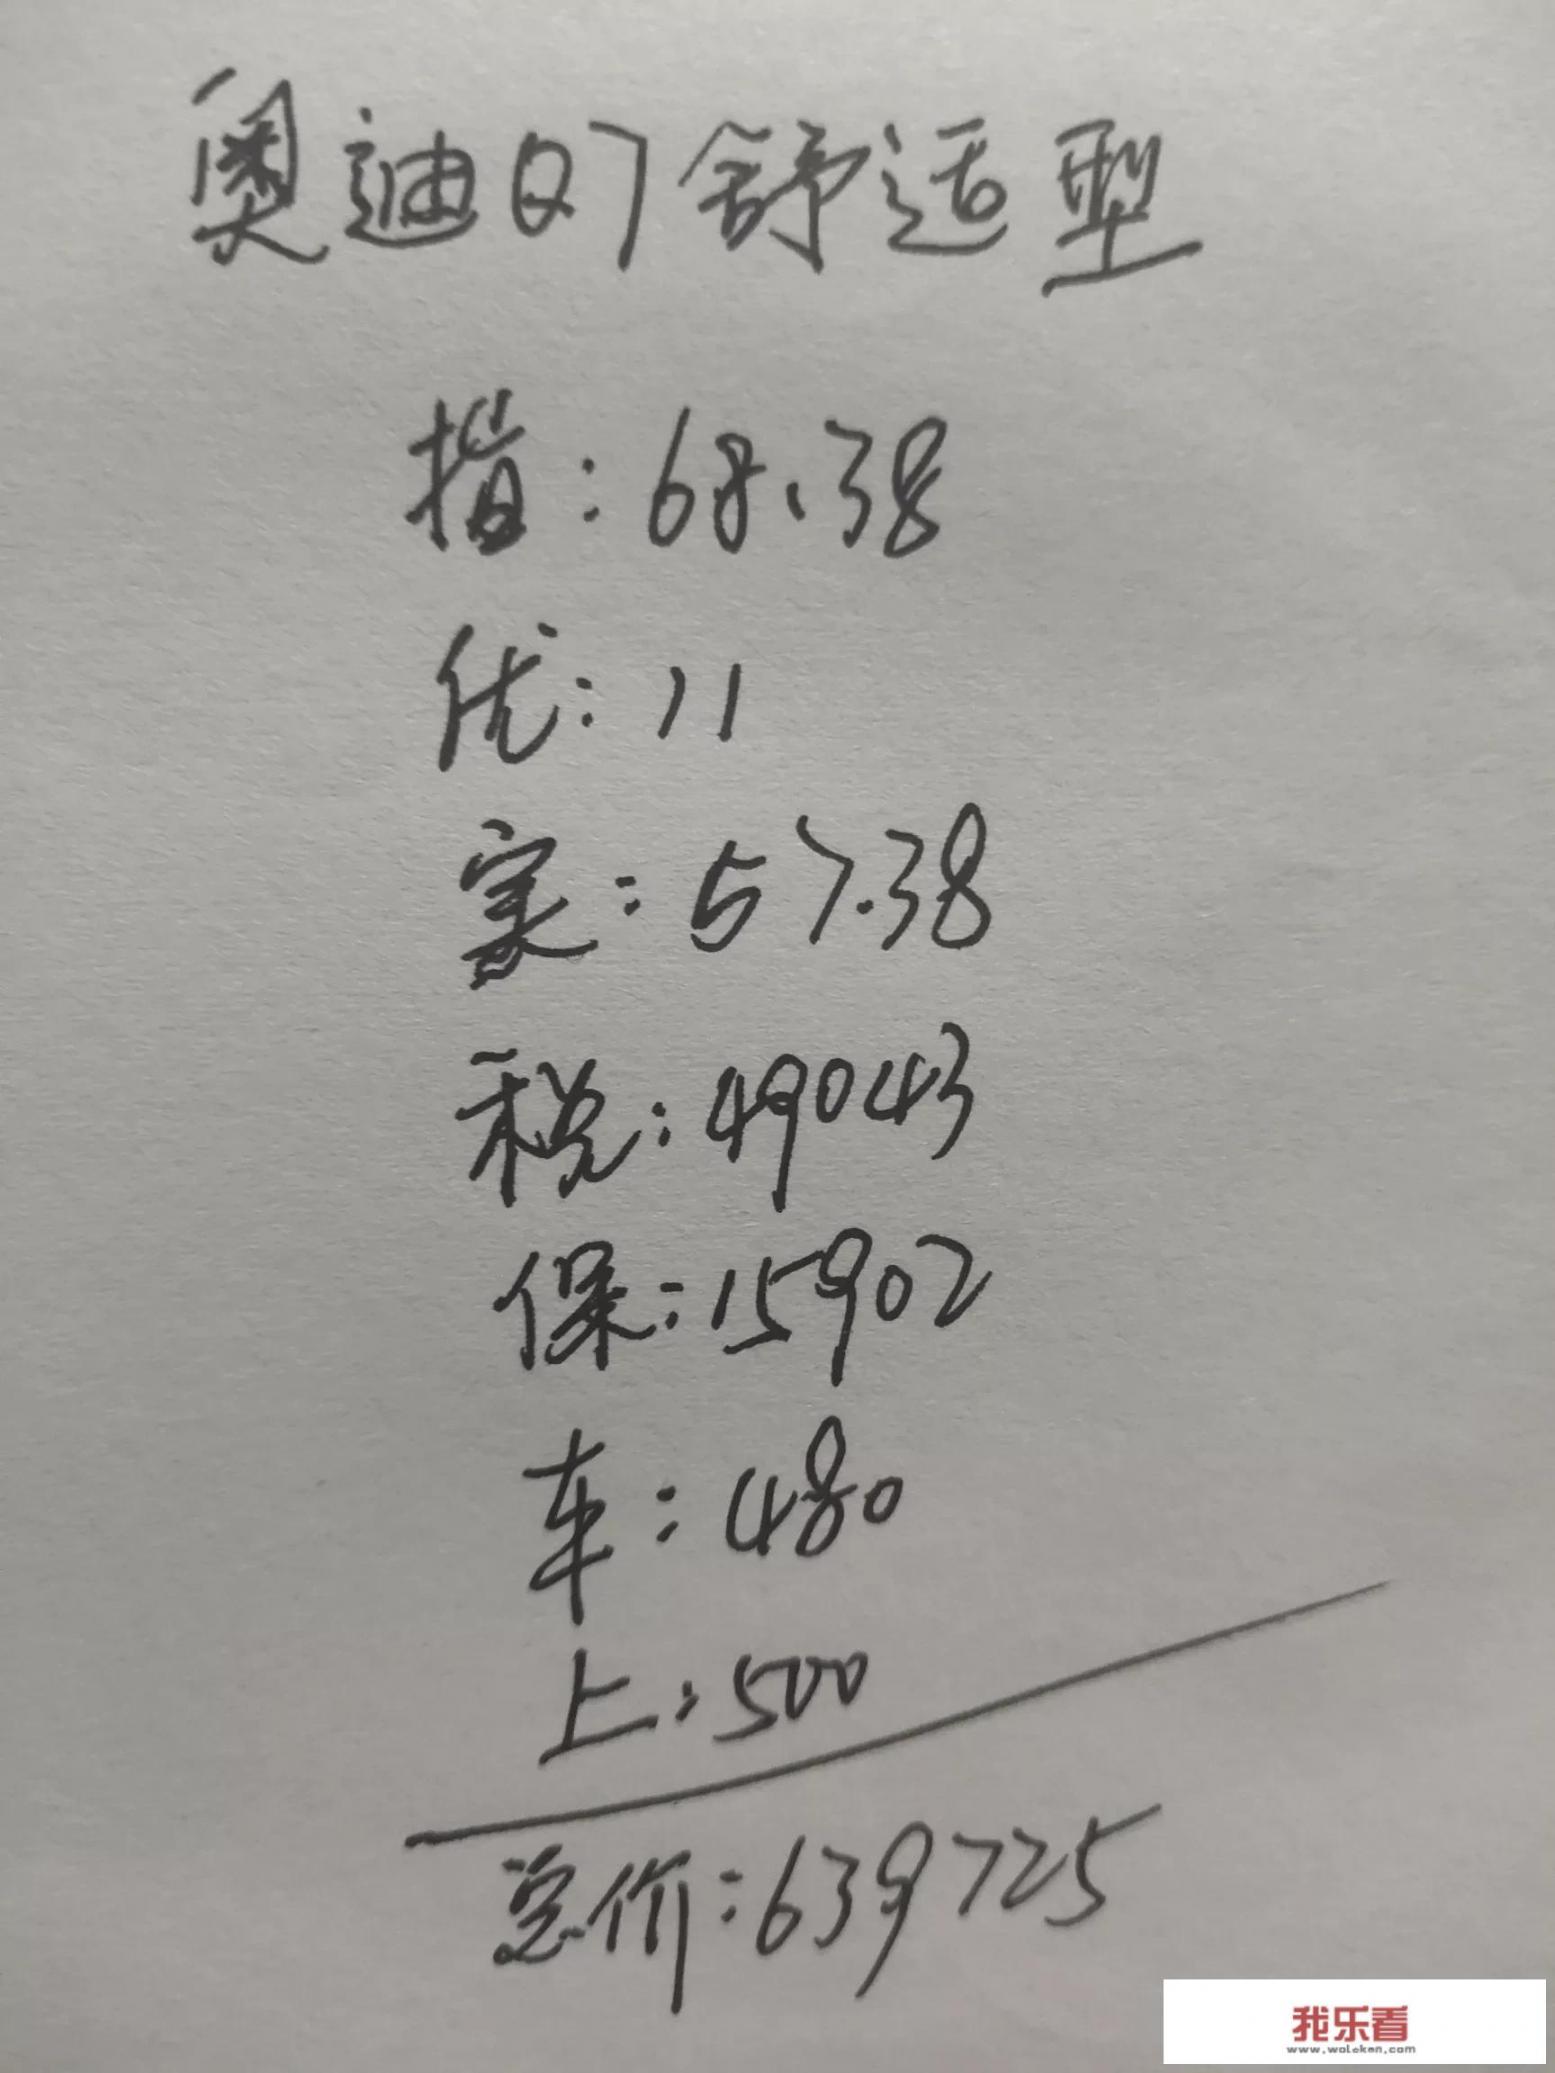 奥迪Q7舒适型
指:68.38
优:11
实:57.38
税:49043
保:15902
车:480
上:500
总价:639725
我乐看
www.woleken.com